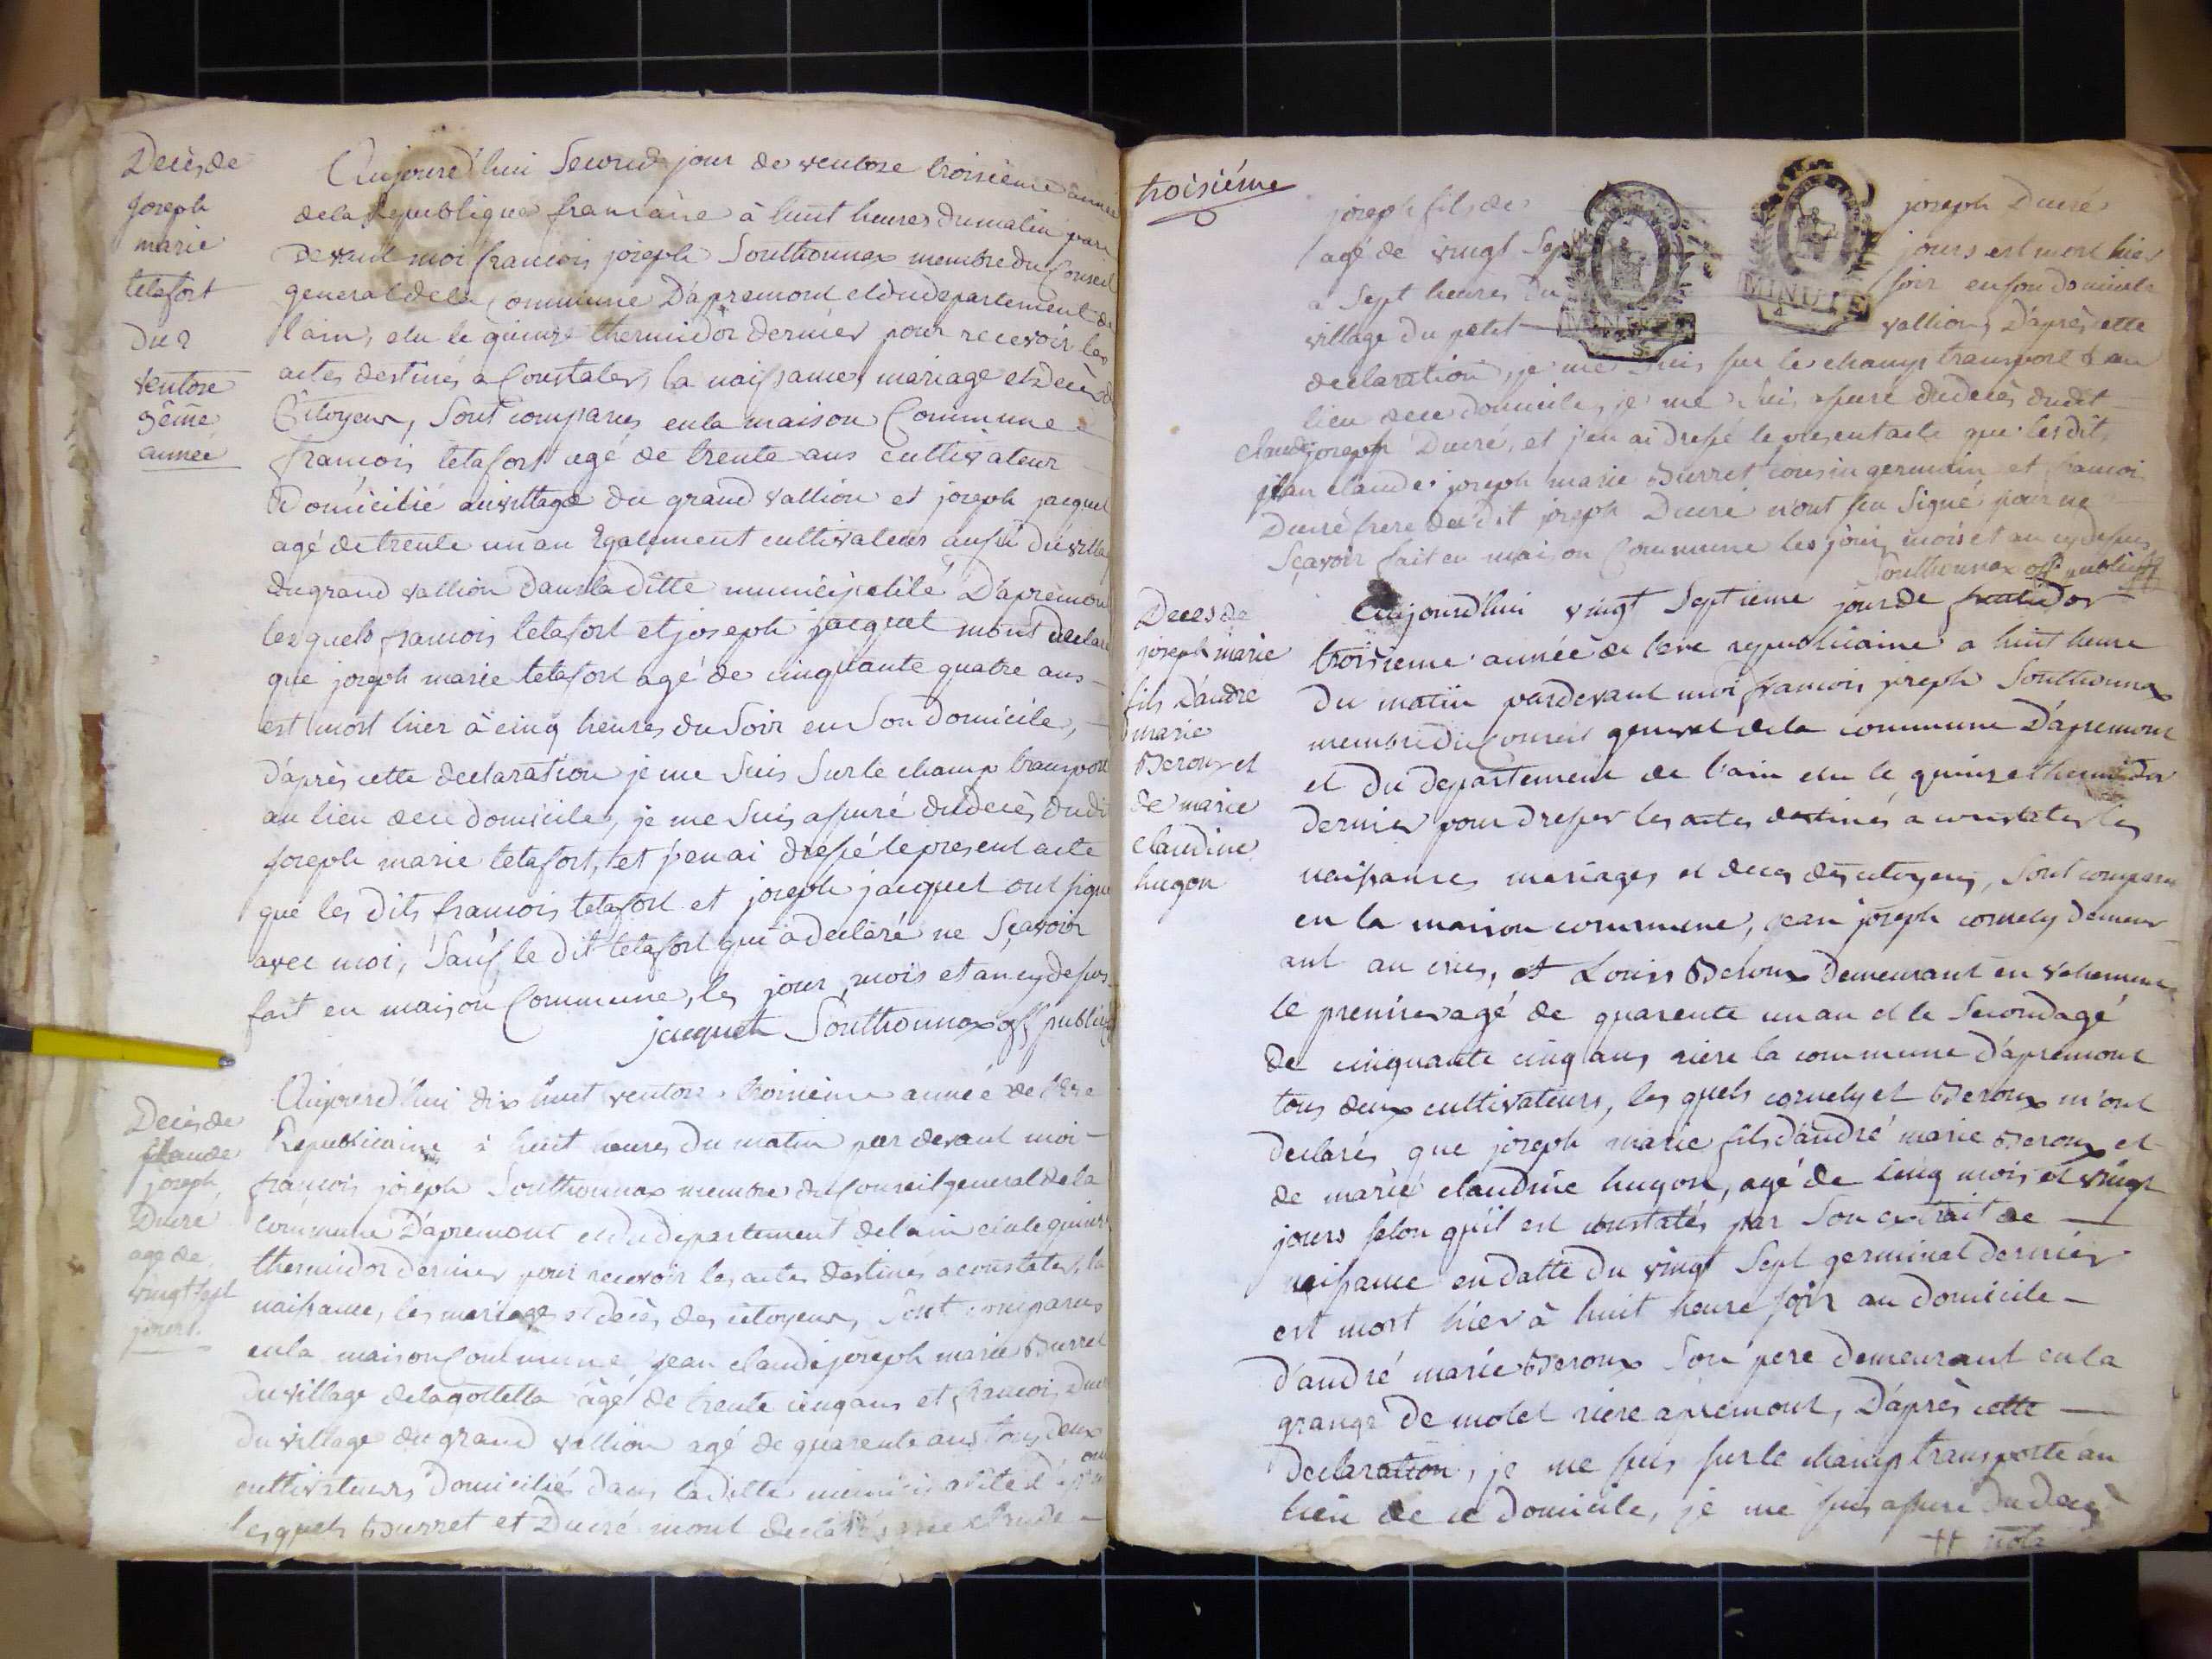 Decès de
Joseph
marie
tetafort
du 2
ventose
3eme
année
Aujourd'hui Second jour de ventose troisieme année
de la Republique francaise à huit heures du matin par
devant moi francois joseph Southonnax membre du Conseil
general de la Commune D'apremont et du departement de
l'ain, elu le quinze thermidor dernier pour recevoir les
actes destinés a Constater la naissance, mariage et decès des
Citoyens, Sont comparus en la maison Commune
françois tetafort agé de trente ans cultivateur
domicilié au village du grand vallion et joseph jacquet
agé de trente un an Egalement cultivateur aussi du villa
du grand vallion dans la ditte municipalité D'apremon
lesquels francois tetafort et joseph jacquet m'ont declaré
que joseph marie tetafort agé de cinquante quatre ans
est mort hier à cinq heures du Soir en Son domicile,
d'après cette declaration je me Suis Sur le champ transporté
au lieu de ce domicile, je me Suis assuré du decès du di
joseph marie tetafort, et j'en ai dressé le present acte
que les dits francois tetafort et joseph jacquet ont signé
avec moi, Sauf le dit tetafort qui a declaré ne Sçavoir
fait en maison Commune, les jour, mois et an cy dessus
jacquet Southonnax off public
Decès de
Claude
joseph
Ducré
agé de
vingt Sept
jours.
Aujourd'hui dix huit ventose troisieme année de l'Ere
Republicaine à huit heures du matin par devant moi
françois joseph Southonnax membre du Conseil general de la
commune D'apremont et du departement de l'ain elu le quinze
thermidor dernier pour recevoir les actes destinés a constater la
naissance, les mariage et decès des citoyens, Sont comparus
en la maison Commune jean claude joseph marie Burret
du village de la gottetta âgé de trente cinq ans et francois Ducré
du village du grand vallion agé de quarente ans tous deux
cultivateurs domiciliés dans la ditte municipalité d'apremont
lesquels Burret et Ducré m'ont declarés que claude
troisiéme
joseph fils de joseph Ducré
agé de vingt Sept jours est mort hier
a Sept heures du soir en son domicile
village du petit vallion, D'après cette
declaration, je me Suis sur le champ transporté au
lieu de ce domicile, je me Suis assuré du decès dudit
claude joseph Ducré, et j'en ai dressé le present acte que les dit
jean claude joseph marie Burret cousin germain et francois
Ducré frere du dit joseph Ducré n'ont seu Signé pour ne
Sçavoir fait en maison Commune les jour, mois et an cy dessus
Southonnax off public
MINUTE
MINUTE
Deces de
joseph marie
fils d'andre
marie
Beroux et
de marie
claudine
hugon
Aujourd'huy vingt Septieme jour de fructidor
troisieme année de l'ere republicaine a huit heure
du matin pardevant moi francois joseph Southonnax
membre du Conseil general de la commune D'apremont
et du departement de l'ain elu le quinze thermidor
dernier pour dresser les actes destinés a constater les
naissances mariages et deces des citoyens, Sont comparu
en la maison commune, jean joseph cornely demeur
ant au crus, et Louis Beroux demeurant en
le premier agé de quarente un an et le Secondagé
de cinquante cinq ans riere la commune d'apremont
tous deux cultivateurs, les quels cornely et Beroux m'ont
declarés que joseph marie fils d'andré marie Beroux et
de marie claudine hugon, agé de cinq mois et vingt
jours selon qu'il est constatés par Son extrait de
naissance en datte du vingt Sept germinal dernier
est mort hier à huit heure soir au domicile
d'andré marie Beroux Son pere demeurant en la
grange de molet riere apremont, D'après cette
declaration, je me suis sur le champ transporté au
lieu de ce domicile, je me suis assuré du decès